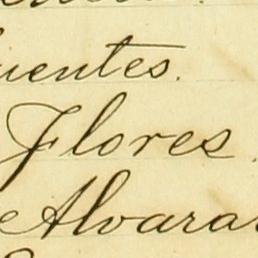 uentes.
Flores.
e Alvara